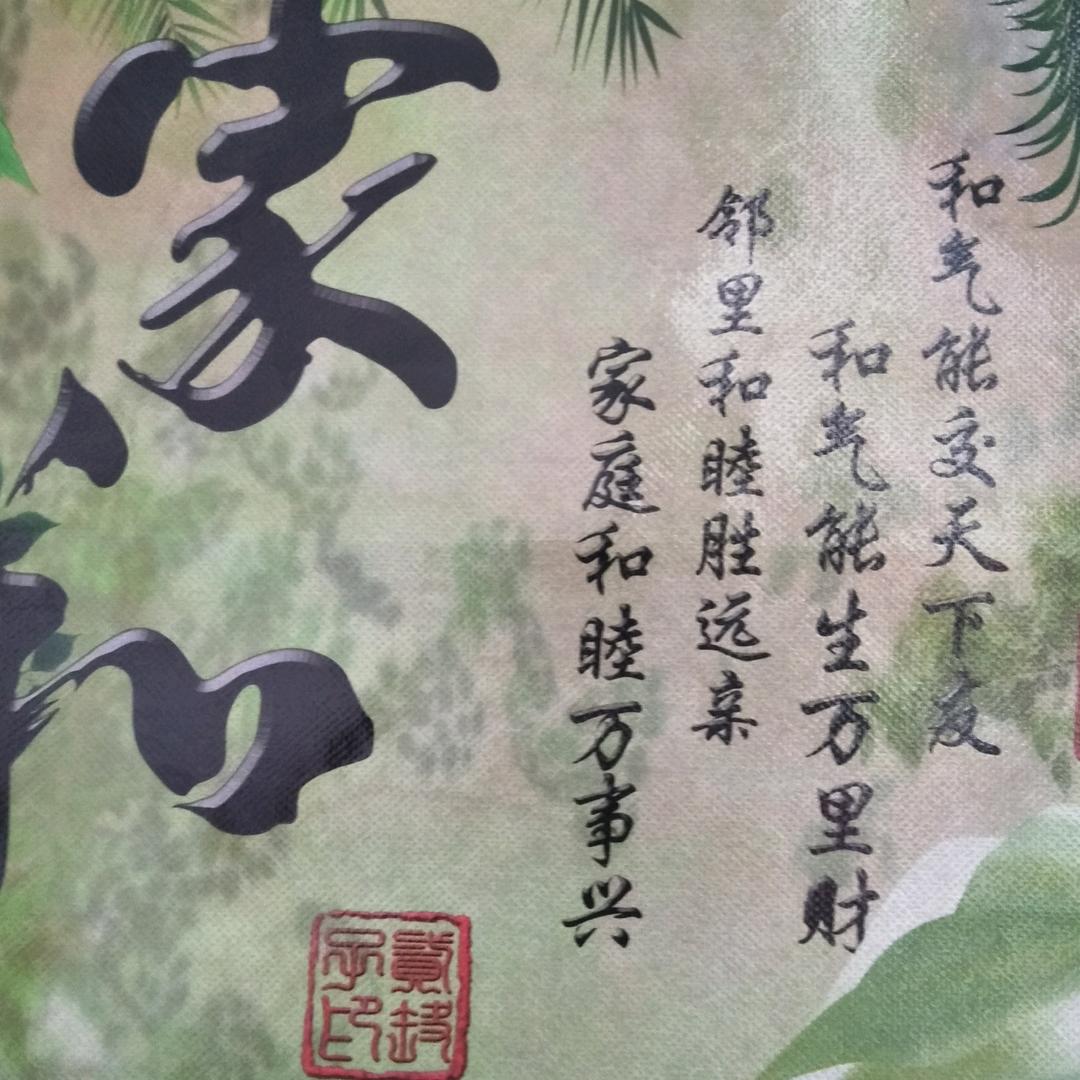 和气能交天下友
和气能生万里财
邻里和睦胜远亲
家庭和睦万事兴
家和